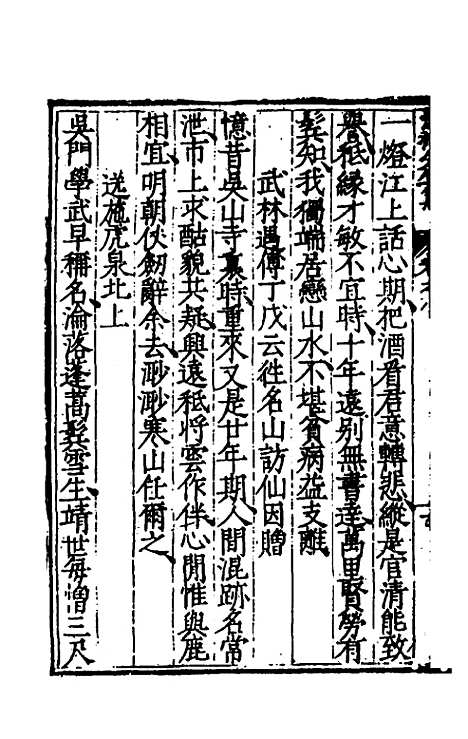 一燈江上話心期把酒看君意轉悲縱是官清能致
譽秪緣才敏不宜時十年遠別無書達萬里賢勞有
鬂知我獨端居戀山水不堪貧病益支離
武林遇傅丁戊云徃名山訪仙因贈
憶昔吳山寺裏時重來又是廿年期人間混跡名常
泄市上求酤貌共疑興遠秪將雲作伴心閒惟與鹿
相宜明朝伏劒辭余去渺渺寒山任爾之
送施虎泉北上
吳門學武早稱名淪落蓬蒿鬂雪生靖世每憎三尺